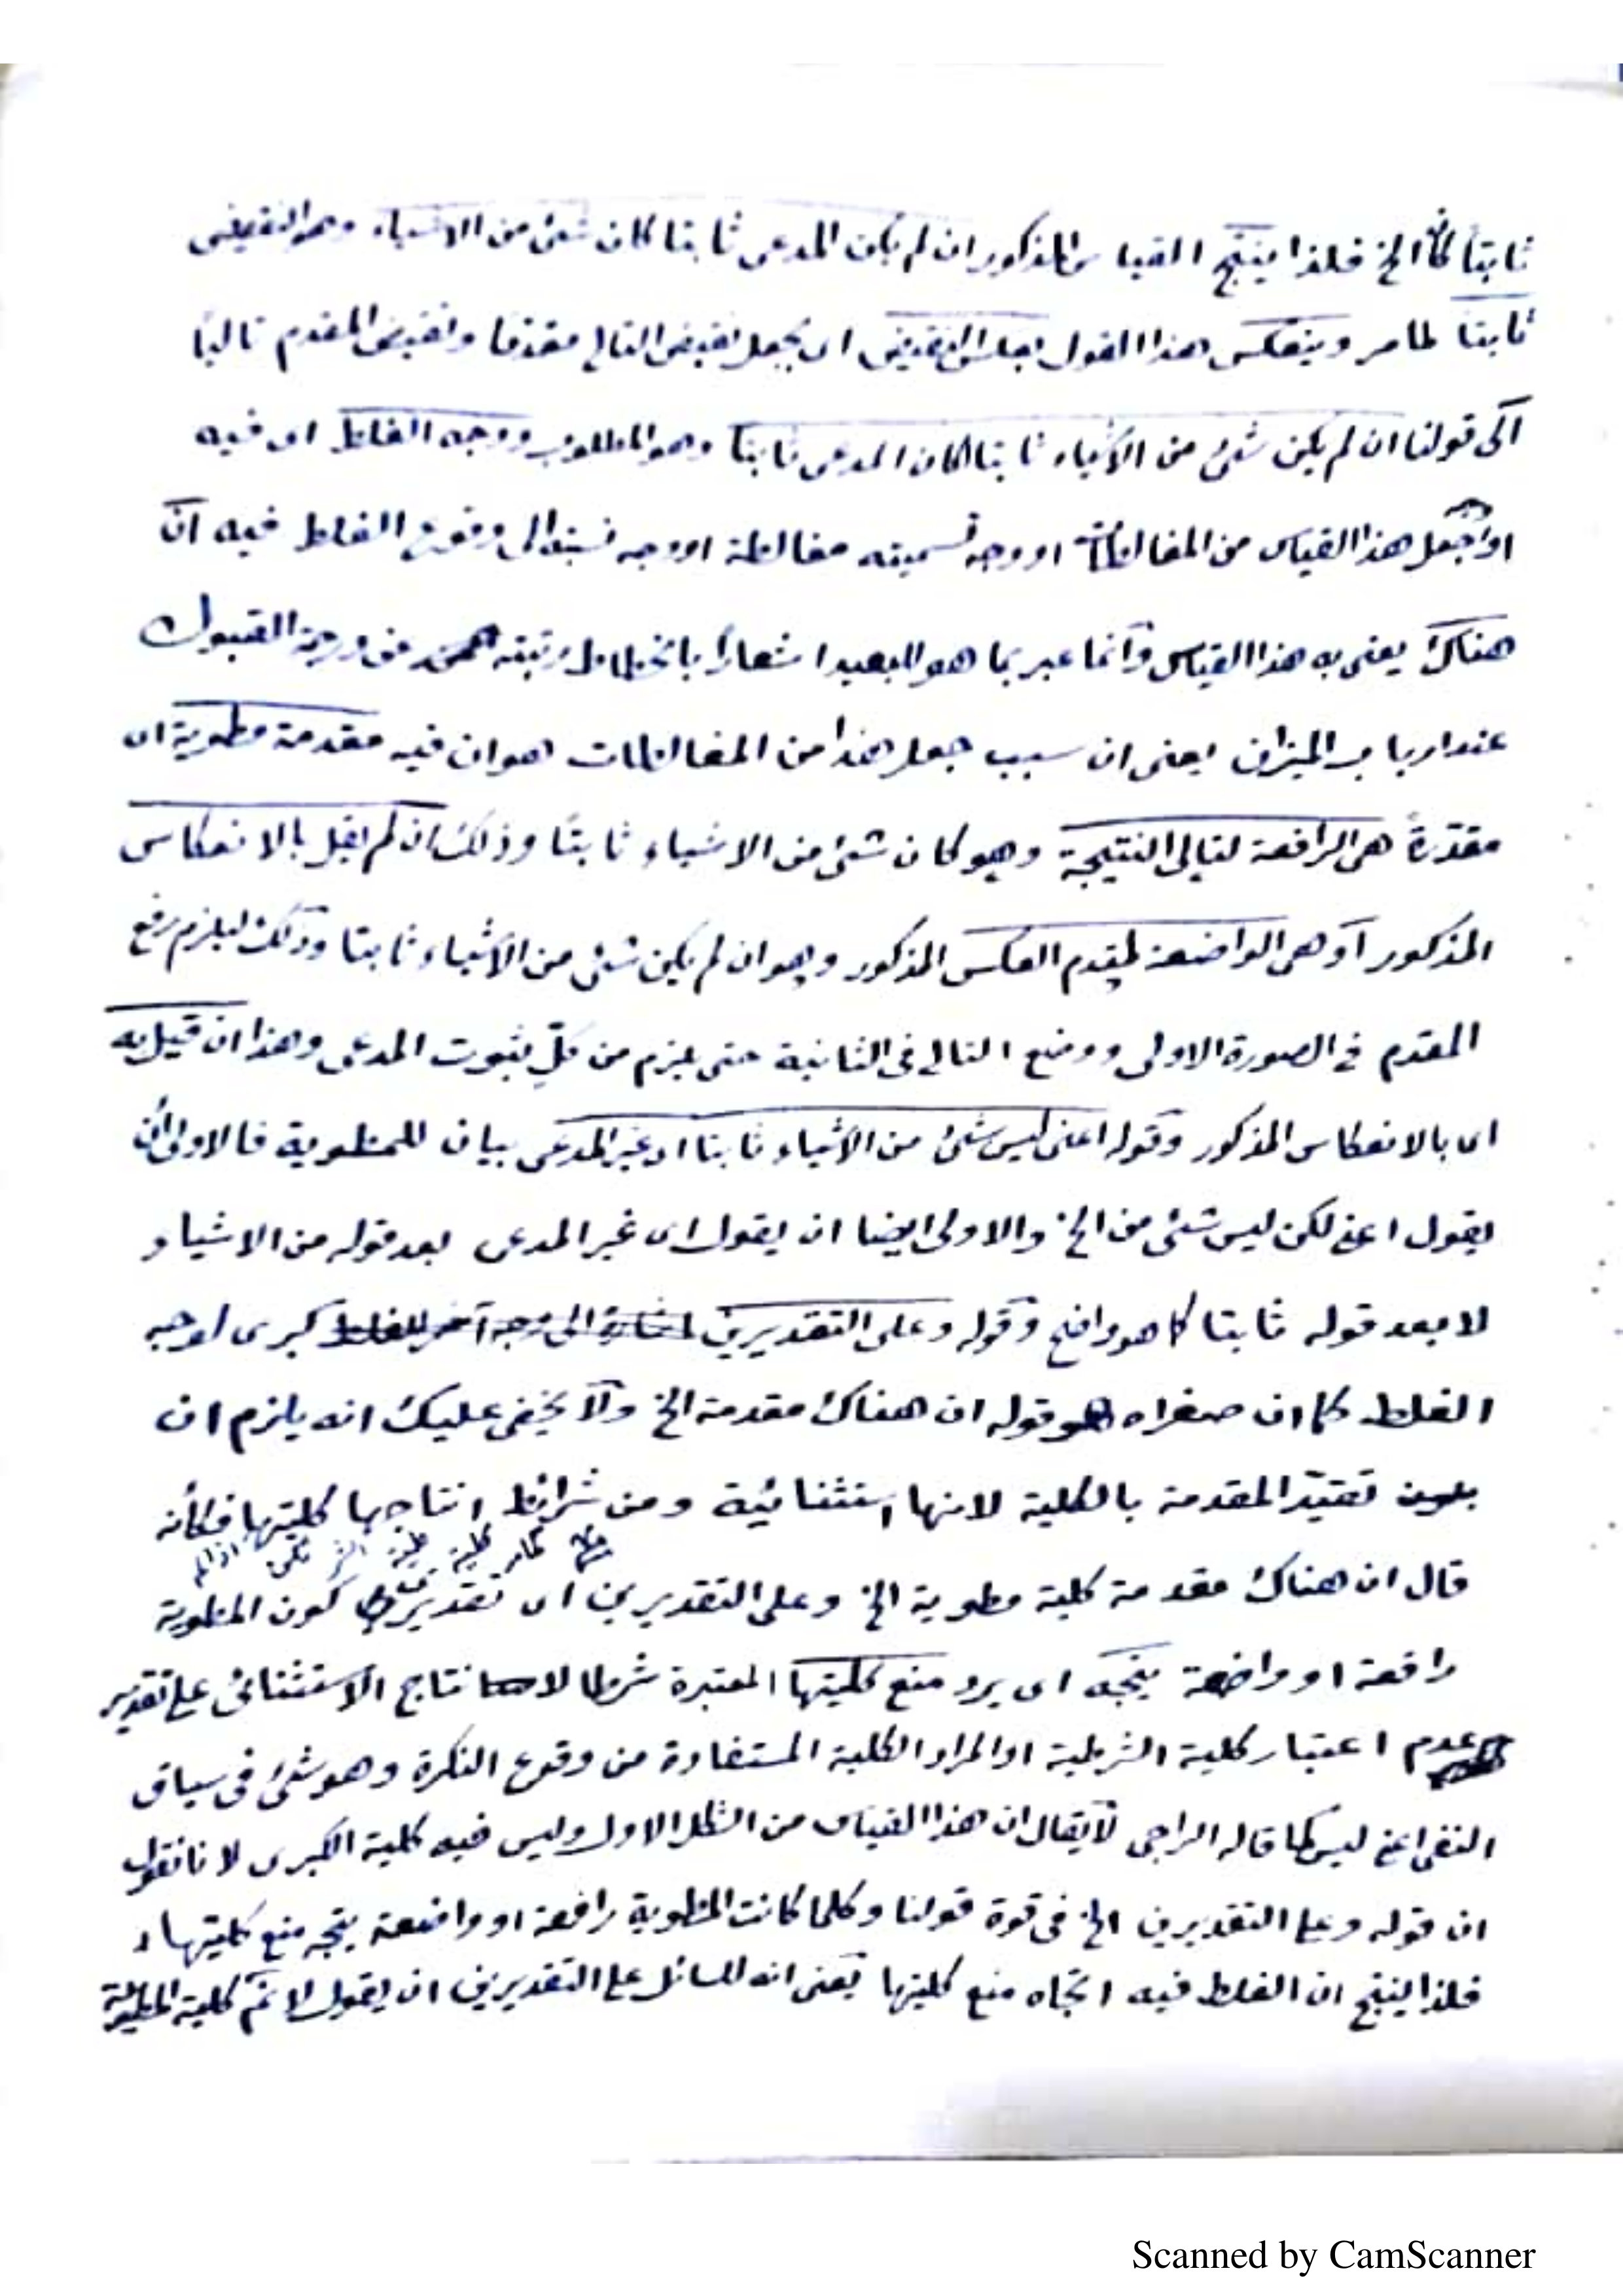 ثابتا كان الخ فلذا ينتج القياس المذكور ان لم يكن المدعى ثابتا كان شئ من الاشياء وهو النقيض
ثابتا لما مر وينعكس هذا القول بعكس النقيض اى بجعل نقيض التالى مقدما ونقيض المقدم تاليا
الى قولنا ان لم يكن شئ من الاشياء ثابتا لكان المدعى ثابتا وهو المطلوب ووجه الغلط اى فيه
او جعل هذا القياس من المغالطات او وجه تسميته مغالطة او وجه نسبته الى وقوع الغلط فيه انّ
هناك يعنى به هذا القياس وانما عبر بما هو للبعيد اشعارا بانحطاط رتبته عن درجة القبول
عند ارباب الميزان يعنى ان سبب جعل هذا من المغالطات هو ان فيه مقدمة مطوية اى
مقدّرة هى الرافعة لتالى النتيجة وهو كان شئ من الاشياء ثابتا وذلك ان لم يقل بالانعكاس
المذكور او هى الواضعة لمقدم العكس المذكور وهو ان لم يكن شئ من الاشياء ثابتا وذلك ليلزم رفع
المقدم فى الصورة الاولى ووضع التالى فى الثانية حتى يلزم من كلّ ثبوت المدعى وهذا ان قيل به
اى بالانعكاس المذكور وقوله اعنى ليس شئ من الاشياء ثابتا اى غير المدعى بيان للمطوية فالاولى ان
يقول اعنى لكن ليس شئ من الخ والاولى ايضا ان يقول اى غير المدعى بعد قوله من الاشياء و
لا بعد قوله ثابتا كما هو واضح وقوله وعلى التقديرين كبرى لوجه
الغلط كما ان صغراه هو قوله ان هناك مقدمة الخ ولا يخفى عليك انه يلزم ان
تقيّد المقدمة بالكلية لانها استثنائية ومن شرائط انتاجها كليتها فكأنه
قال ان هناك مقدمة كلية مطوية الخ وعلى التقديرين اى تقديرى كون المطوية
رافعة او واضعة يتجه اى يرد منع كليتها المعتبرة شرطا لانتاج الاستثنائى على تقدير
عدم اعتبار كلية الشرطية او المراد الكلية المستفادة من وقوع النكرة وهو شئ فى سياق
النفى اعنى ليس كما قاله الراجى لا يقال ان هذا القياس من الشكل الاول وليس فيه كلية الكبرى لانا نقول
ان قوله وعلى التقديرين الخ فى قوة قولنا وكلما كانت المطوية رافعة او واضعة يتجه منع كليتها
فلذا ينتج ان الغلط فيه اتجاه منع كليتها يعنى انه للسائل على التقديرين ان يقول لا نم كلية المطوية
Scanned by CamScanner